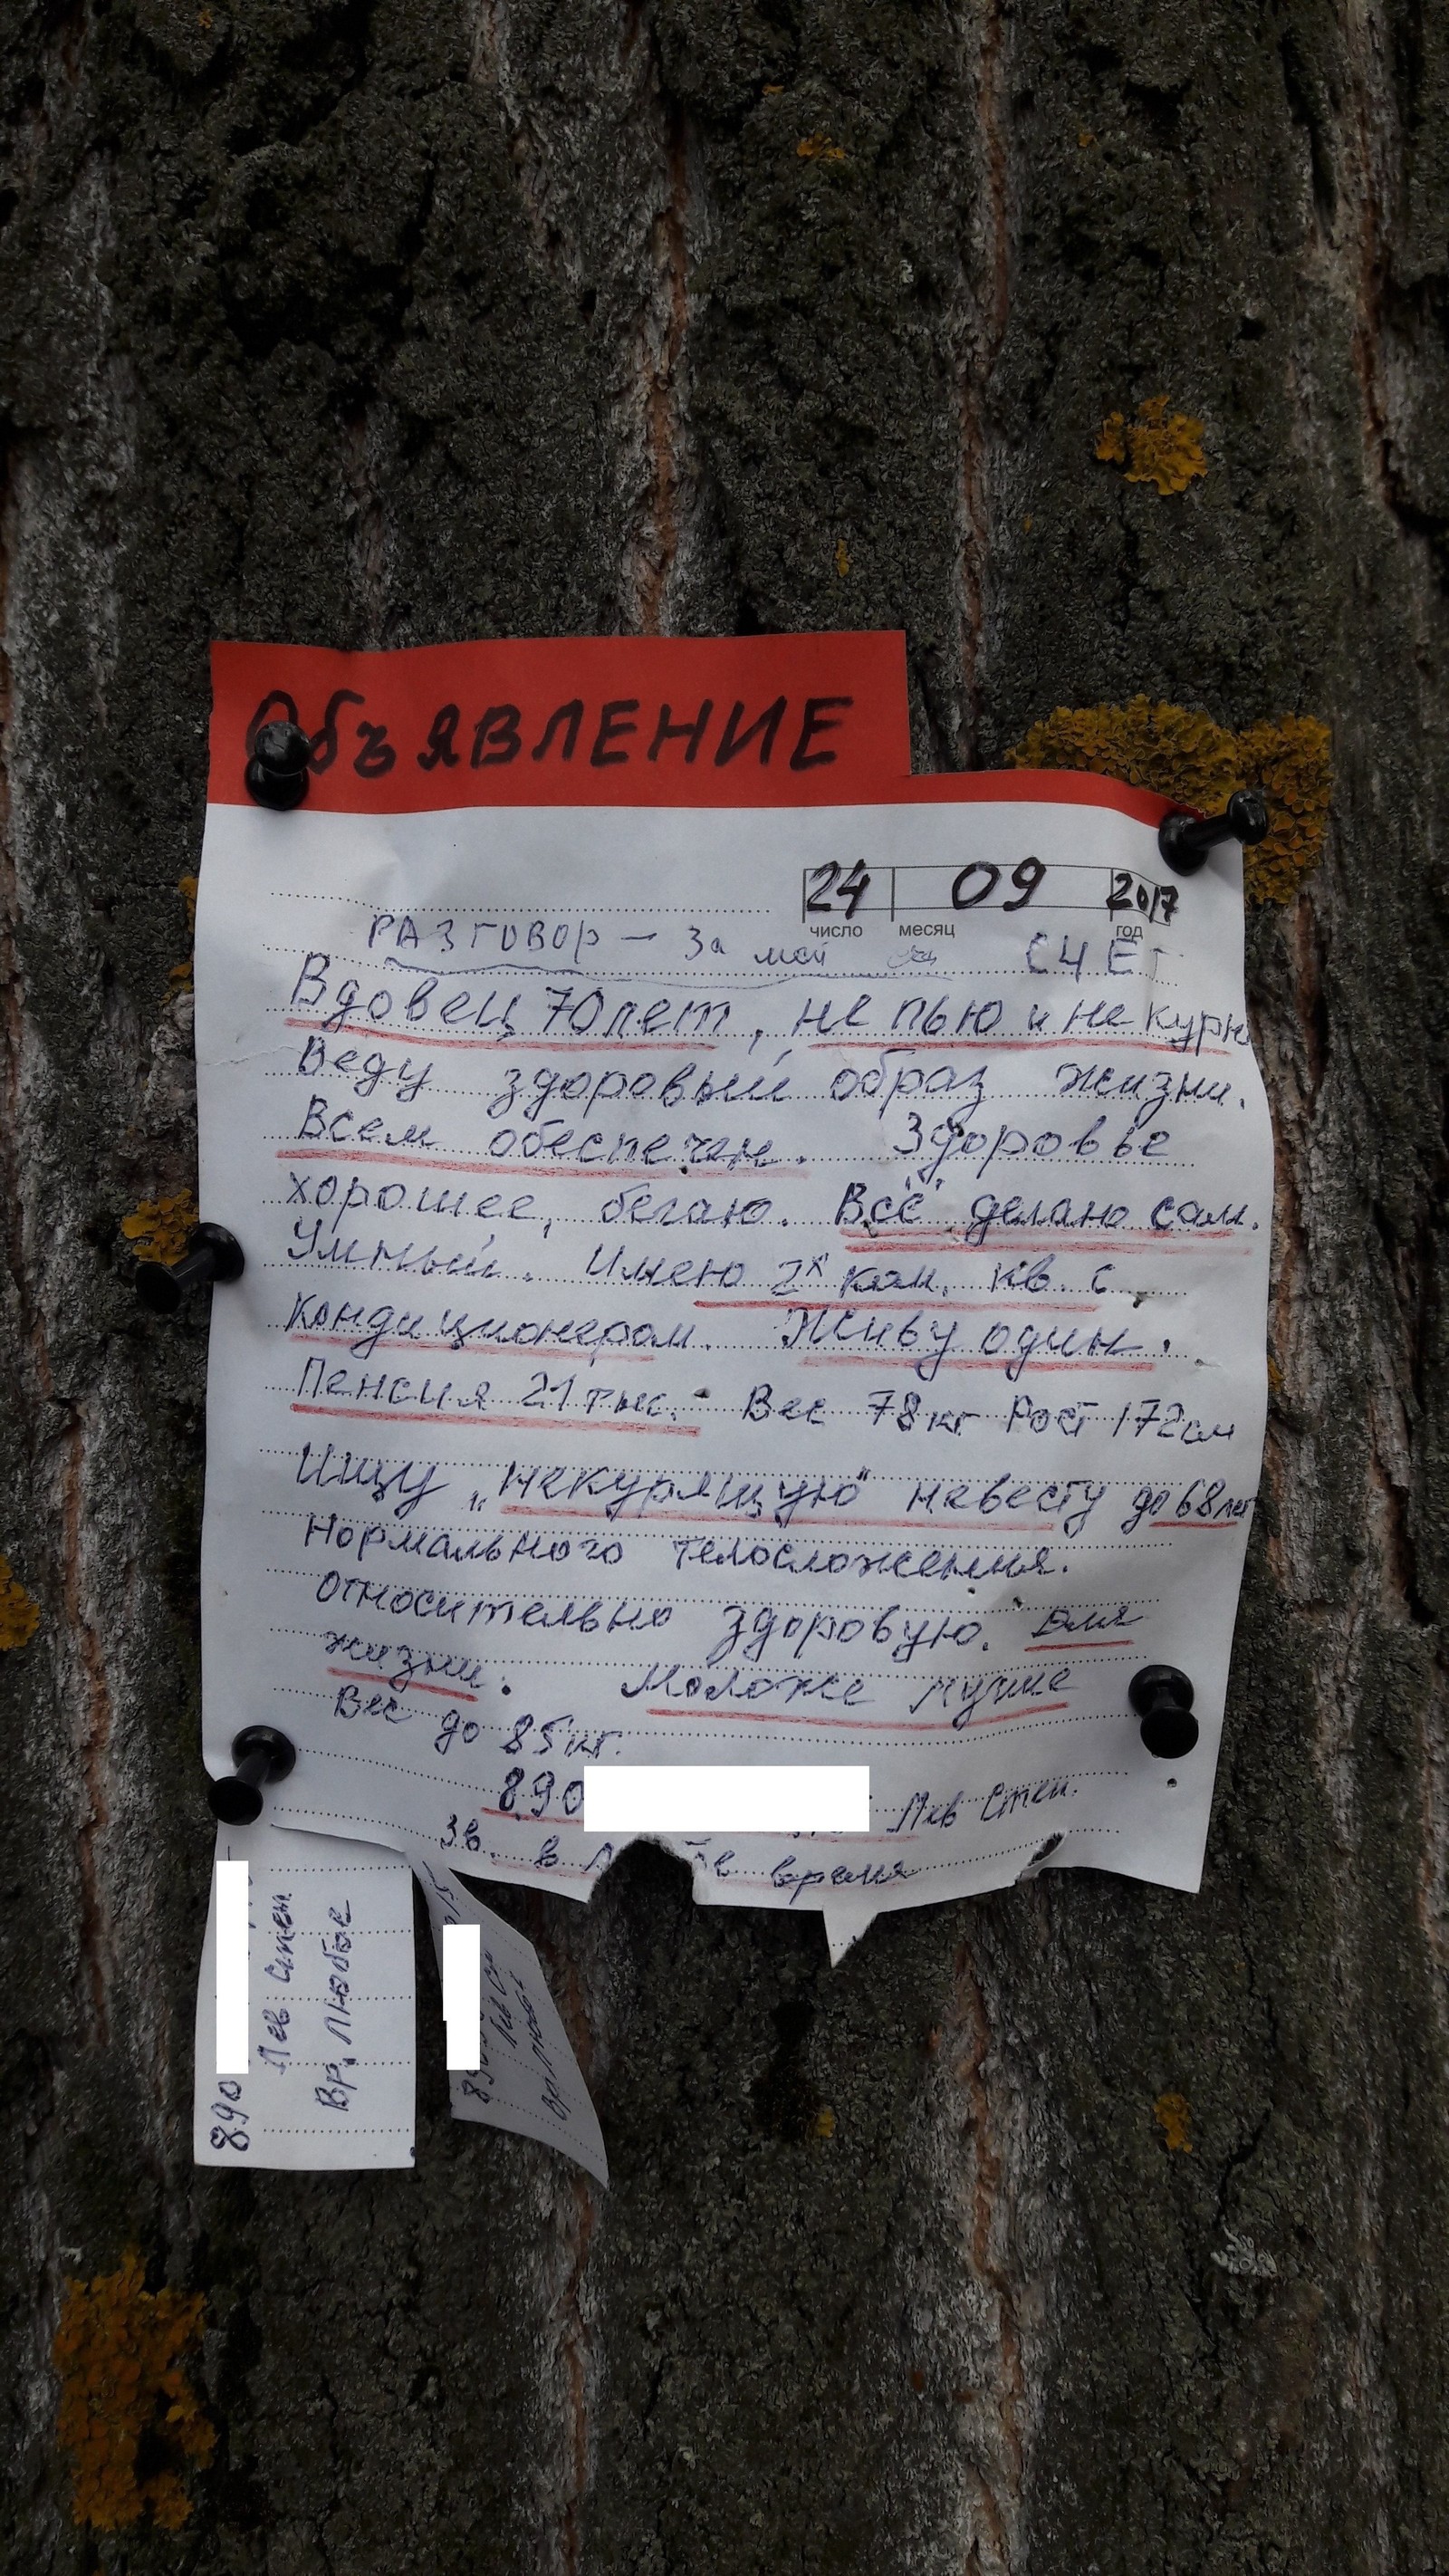 ОбъЯВЛЕНИЕ
24 09 2017
число месяц год
РАЗГОВОР - За мой СЧЕТ
Вдовец 70 лет, не пью и не курю
Веду здоровый образ жизни.
Всем обеспечен. Здоровье
хорошее, бегаю. "Всё" делаю сам.
Умный. Имею 2х ком. кв. с
кондиционером. Живу один.
Пенсия 21 тыс. Вес 78 кг Рост 172 см
Ищу „некурящую" невесту до 68 лет
нормального телосложения.
относительно здоровую. Для
жизни. Моложе лучше
Вес до 85 кг.
890 Лев Степ.
Зв. в время
890
Лев Степ
Вр. любое
Лев